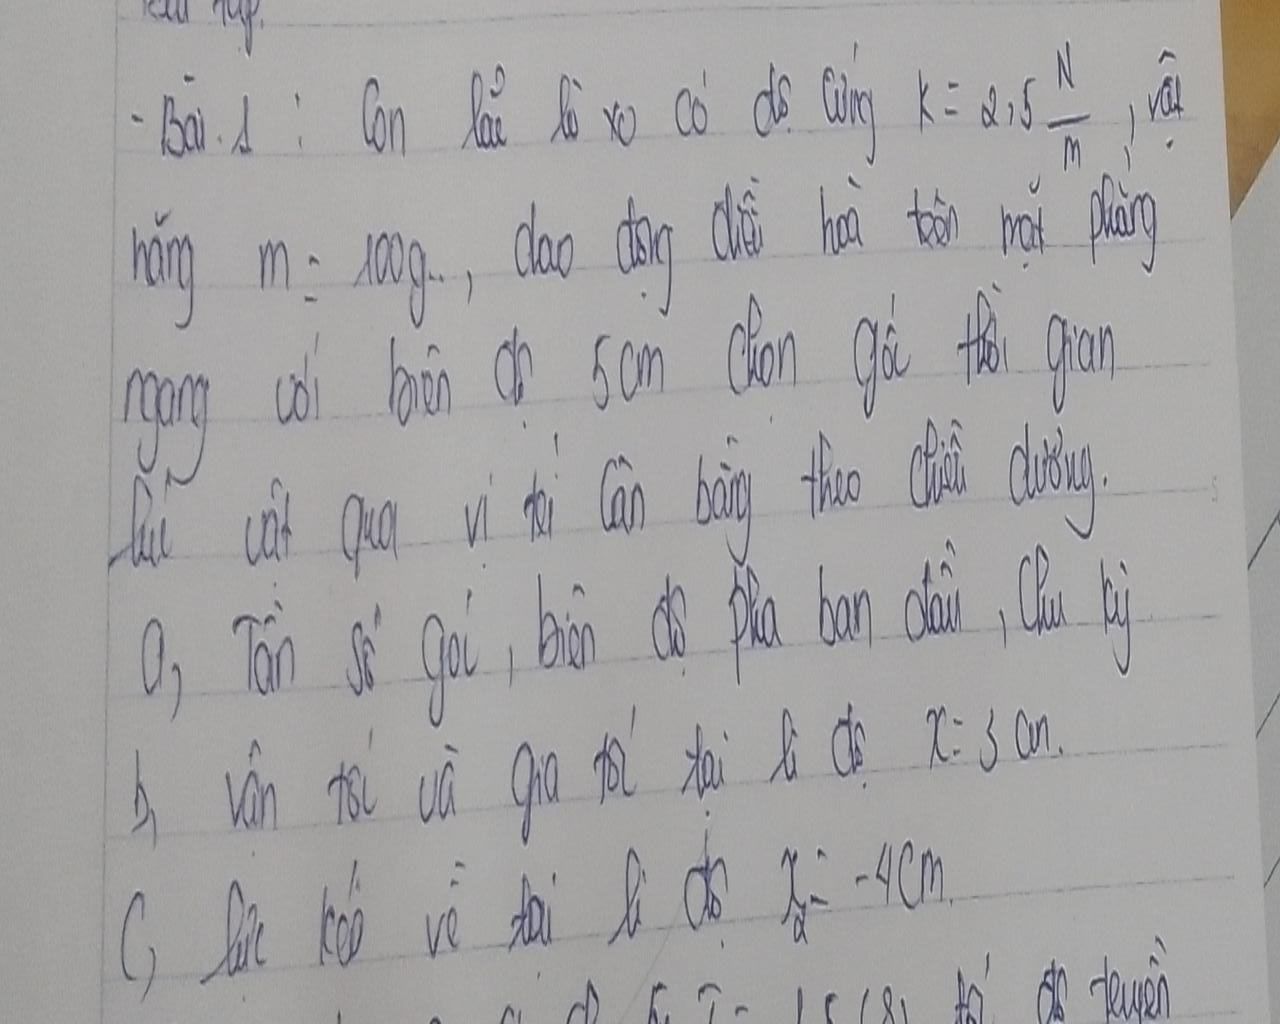 - Bài 1 : Con lắc lò xo có độ cứng k = 2,5 N/m, vật
nặng m = 100g.., dao động điều hoà trên mặt phẳng
ngang với biên độ 5cm chọn gốc thời gian
lúc vật qua vị trí cân bằng theo chiều dương.
a, Tần số góc, biên độ pha ban đầu, chu kỳ
b, vận tốc và gia tốc tại li độ x = 3 cm.
c, lực kéo về tại li độ x₂ = -4cm.
độ truyền